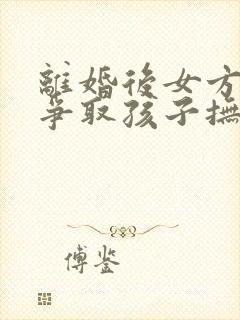 離婚後女方
爭取孩子撫
傅鉴